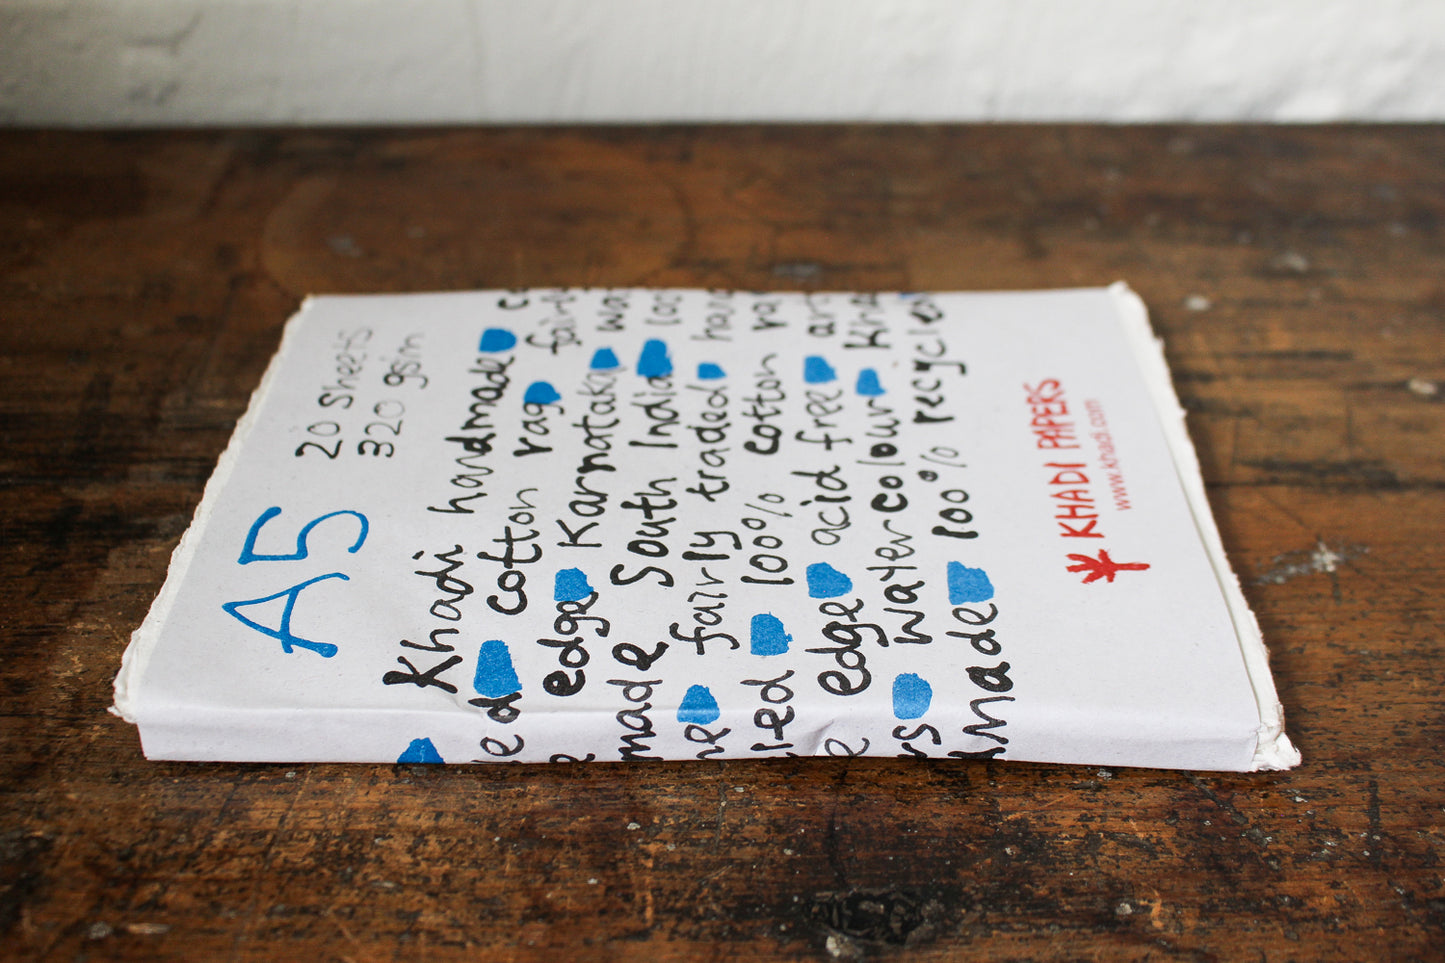 A5
20 Sheets
320 gsm
Khadi handmade
cotton rag
edge Karnataka
made South India
fairly traded
100% cotton
edge acid free
watercolour
made 100% recycled
KHADI PAPERS
www.khadi.com